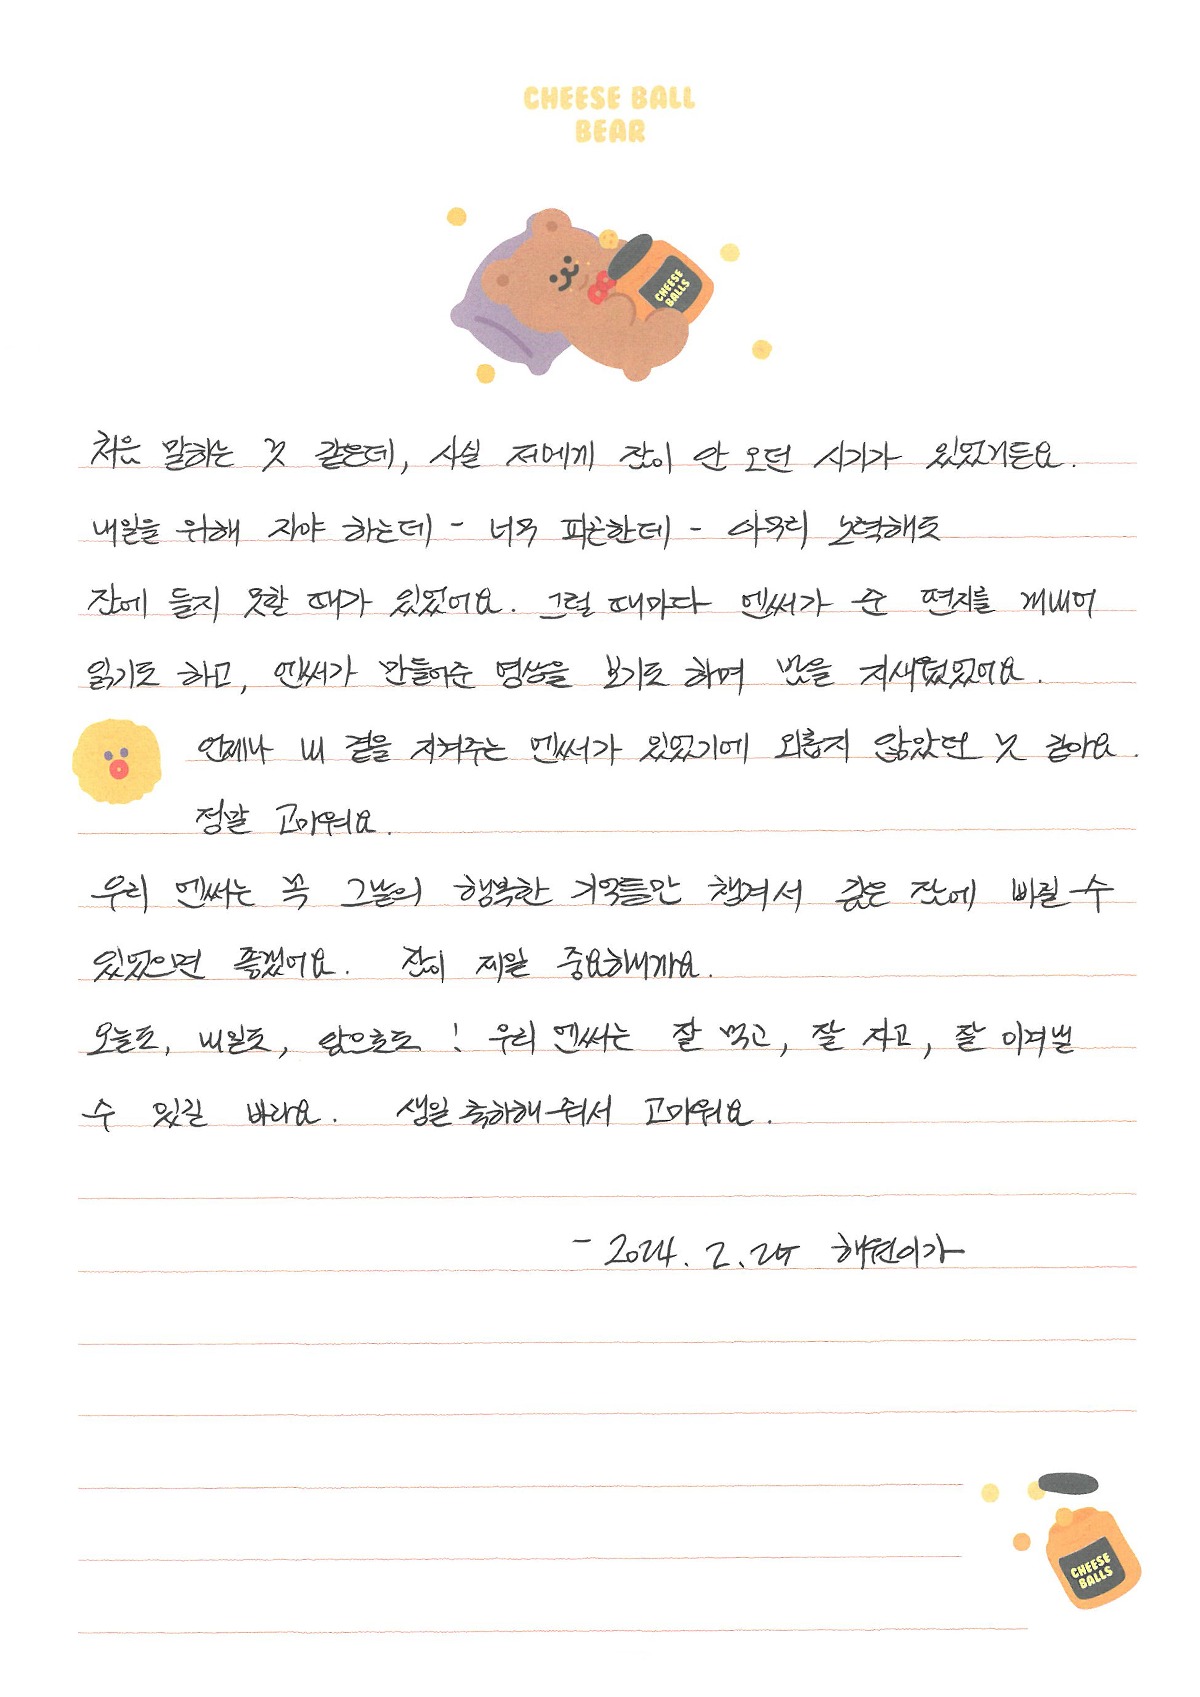 CHEESE BALL
BEAR
CHEESE
BALLS
처음 말하는 것 같은데, 사실 저에게 잠이 안 오던 시기가 있었거든요.
내일을 위해 자야 하는데 - 너무 피곤한데 - 아무리 노력해도
잠에 들지 못할 때가 있었어요. 그럴 때마다 엔써가 준 편지를 꺼내어
읽기도 하고, 엔써가 만들어준 영상을 보기도 하며 밤을 지새웠었어요.
언제나 내 곁을 지켜주는 엔써가 있었기에 외롭지 않았던 것 같아요.
정말 고마워요.
우리 엔써는 꼭 그날의 행복한 기억들만 챙겨서 깊은 잠에 빠질 수
있었으면 좋겠어요. 잠이 제일 중요하니까요.
오늘도, 내일도, 앞으로도! 우리 엔써는 잘 먹고, 잘 자고, 잘 이겨낼
수 있길 바라요. 생일 축하해 줘서 고마워요.
- 2024. 2. 25 해원이가
CHEESE
BALLS